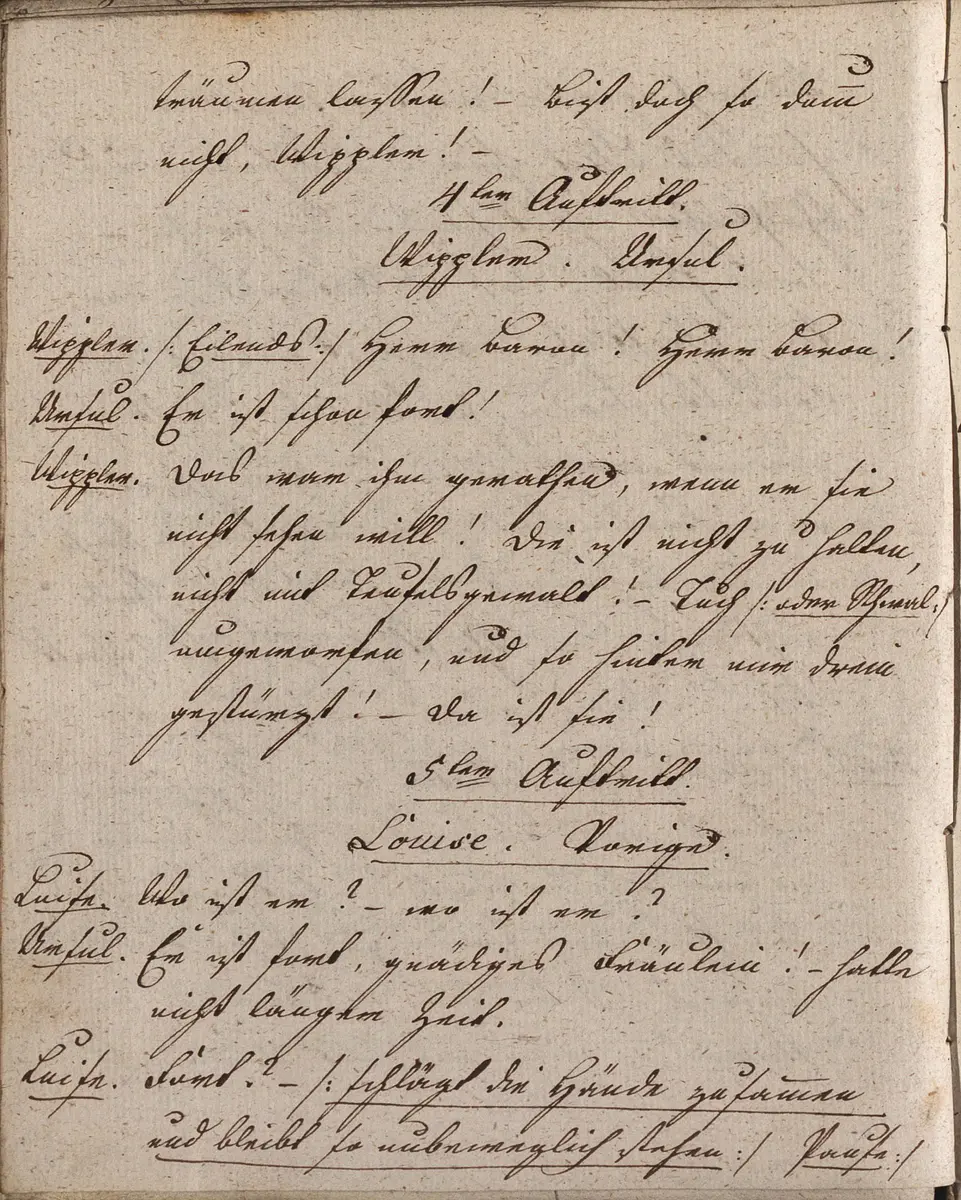 träumen lassen! – bist doch so dum̅
nicht, Wippler! –
4ter Auftritt.
Wippler. Ursul.
Wippler. /: Eilends :/ Herr Baron! Herr Baron!
Ursul. Er ist schon fort!
Wippler. Das war ihm gerathen, wenn er sie
nicht sehen will! Die ist nicht zu halten,
nicht mit Teufelsgewalt! – Tuch /: oder Schwal :/
umgeworfen, und so hinter mir drein
gestürzt! – Da ist sie!
5ter Auftritt.
Louise. Vorige.
Luise. Wo ist er? – wo ist er?
Ursul. Er ist fort, gnädiges Fräulein! – hatte
nicht länger Zeit.
Luise. Fort? – /: schlägt die Hände zusam̅en
und bleibt so unbeweglich stehen :/ Pause :/